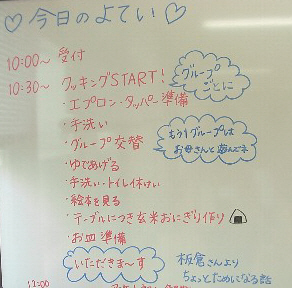 ♡今日のよてい♡
10:00〜 受付
10:30〜 クッキングSTART!
グループごとに
・エプロン・タッパー準備
・手洗い
・グループ交替
もう1グループは
お母さんと遊んでネ
・ゆであげる
・手洗い・トイレ休けい
・絵本を見る
・テーブルにつき玄米おにぎり作り
・お皿準備
いただきま〜す
板倉さんより
ちょっとためになる話
12:00